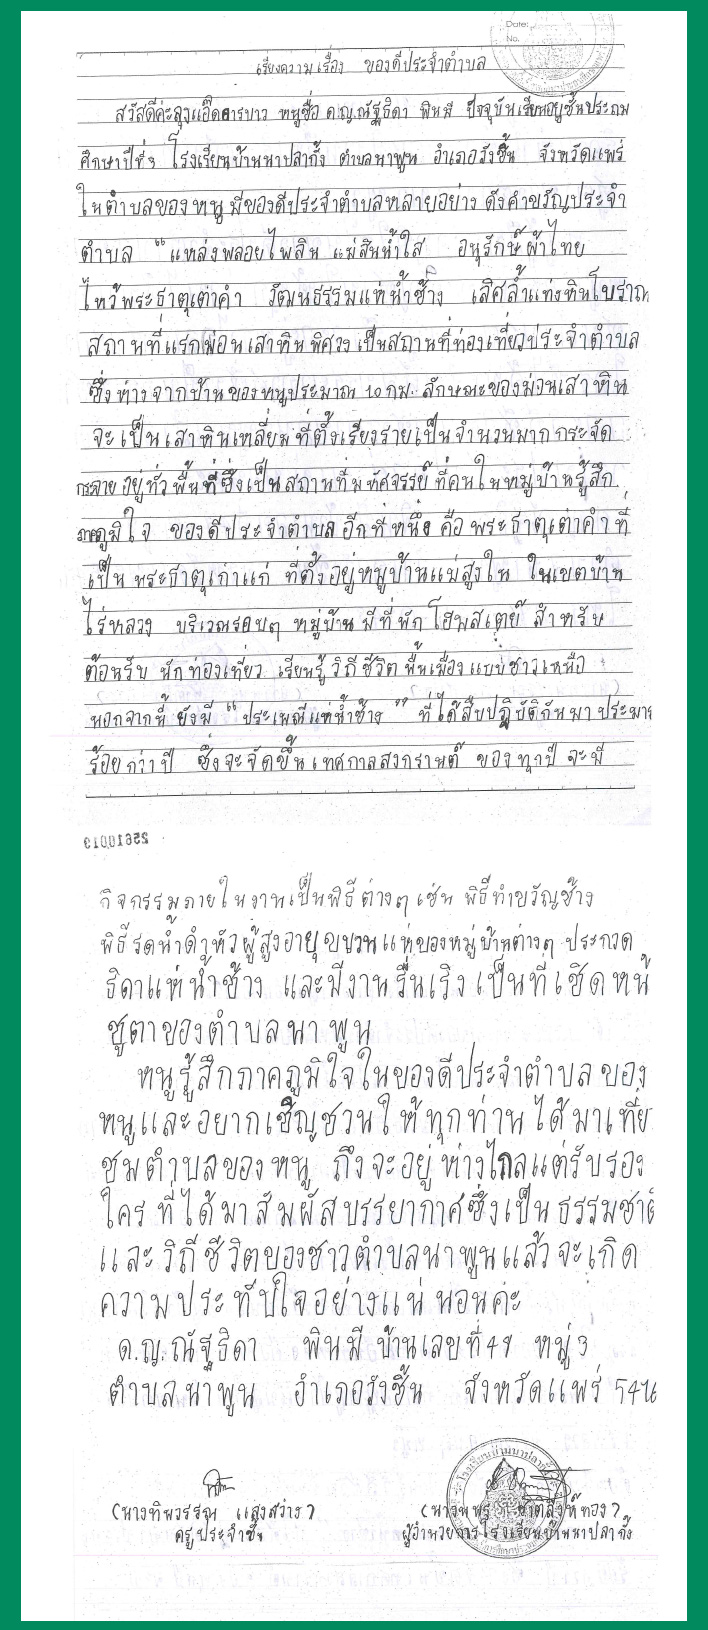 Date:
No.
เรียงความเรื่อง ของดีประจำตำบล
สวัสดีค่ะลุงแอ๊ดคาราบาว หนูชื่อ ด.ญ.ณัฐธิดา พินมี ปัจจุบันเรียนอยู่ชั้นประถม
ศึกษาปีที่ 3 โรงเรียนบ้านนาปลากั้ง ตำบลนาพูน อำเภอวังชิ้น จังหวัดแพร่
ในตำบลของหนูมีของดีประจำตำบลหลายอย่าง ดังคำขวัญประจำ
ตำบล "แหล่งพลอยไพลิน แม่สินน้ำใส อนุรักษ์ผ้าไทย
ไหว้พระธาตุเต่าคำ วัฒนธรรมแห่น้ำช้าง เลิศล้ำแท่งหินโบราณ
สถานที่แรกม่อนเสาหินพิศวง เป็นสถานที่ท่องเที่ยวประจำตำบล
ซึ่งห่างจากบ้านของหนูประมาณ 10 กม. ลักษณะของม่อนเสาหิน
จะเป็นเสาหินเหลี่ยมที่ตั้งเรียงรายเป็นจำนวนมากกระจัด
กระจายอยู่ทั่วพื้นที่ซึ่งเป็นสถานที่มหัศจรรย์ที่คนในหมู่บ้านรู้สึก
ภาคภูมิใจ ของดีประจำตำบลอีกที่หนึ่ง คือ พระธาตุเต่าคำที่
เป็นพระธาตุเก่าแก่ ที่ตั้งอยู่หมู่บ้านแม่สูงใน ในเขตบ้าน
ไร่หลวง บริเวณรอบๆ หมู่บ้านมีที่พักโฮมสเตย์ สำหรับ
ต้อนรับ นักท่องเที่ยว เรียนรู้วิถีชีวิตพื้นเมืองแบบชาวเหนือ
นอกจากนี้ ยังมี "ประเพณีแห่น้ำช้าง" ที่ได้สืบปฏิบัติกันมาประมาณ
ร้อยกว่าปี ซึ่งจะจัดขึ้นเทศกาลสงกรานต์ ของทุกปี จะมี
25610013
กิจกรรมภายในงานเป็นพิธีต่างๆ เช่น พิธีทำขวัญช้าง
พิธีรดน้ำดำหัวผู้สูงอายุ ขบวนแห่ของหมู่บ้านต่างๆ ประกวด
ธิดาแห่น้ำช้าง และมีงานรื่นเริงเป็นที่เชิดหน้
ชูตาของตำบลนาพูน
หนูรู้สึกภาคภูมิใจในของดีประจำตำบลของ
หนูและอยากเชิญชวนให้ทุกท่านได้มาเที่ย
ชมตำบลของหนู ถึงจะอยู่ห่างไกลแต่รับรอง
ใครที่ได้มาสัมผัสบรรยากาศซึ่งเป็นธรรมชาติ
และวิถีชีวิตของชาวตำบลนาพูนแล้วจะเกิด
ความประทับใจอย่างแน่นอนค่ะ
ด.ญ.ณัฐธิดา พินมี บ้านเลขที่ 49 หมู่ 3
ตำบลนาพูน อำเภอวังชิ้น จังหวัดแพร่ 541
(นางทิพวรรณ แสงสว่าง)
ครูประจำชั้น
ผู้อำนวยการโรงเรียนบ้านนาปลากั้ง